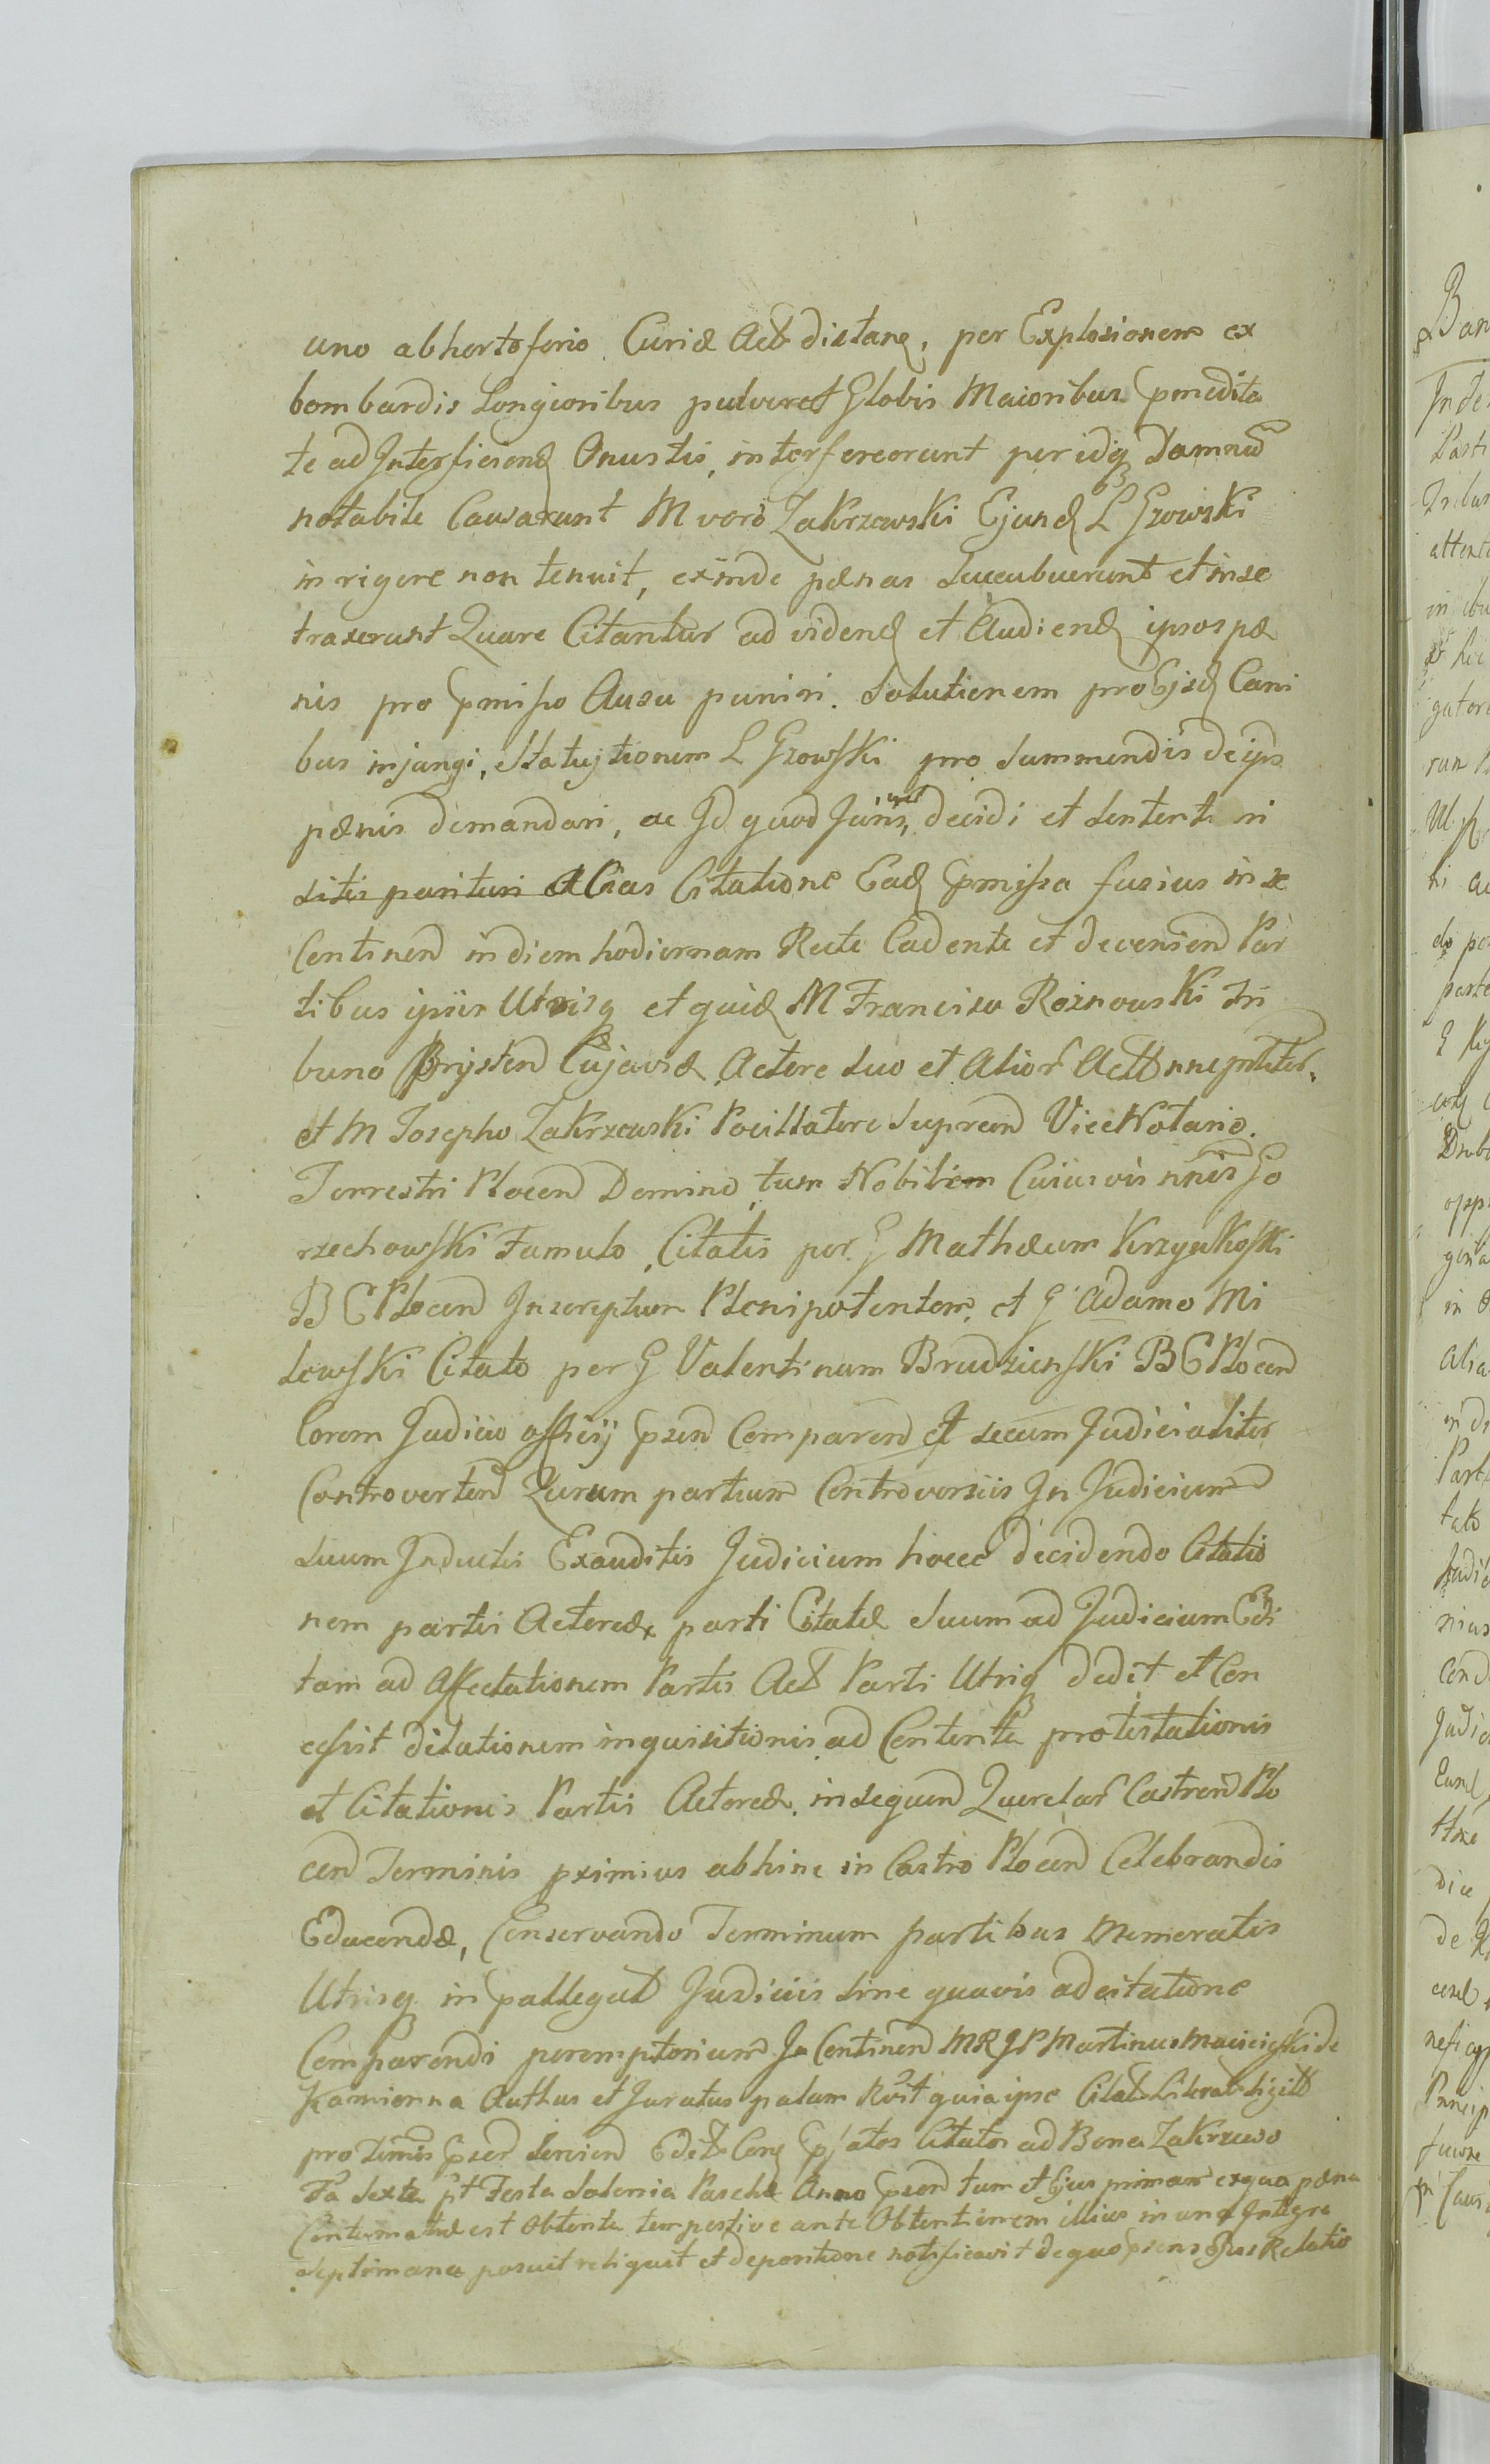 uno ab horto ferio Curiæ Act distanȩ, per Explosionem ex
bombardis Longioribus pulvere et Globis Maioribus pmedita
te ad Interficiend Onustis, interfecerunt per idq Damnū
notabile Causarunt M vero Zakrzewski Ejund L Gzowski
in rigore non tenuit, exinde pænas Succubuerunt et in se
traxerunt Quare Citantur ad vidend et Audiend ipsos pæ
nis pro pmisso Ausu puniri. Solutionem pro Ejsd Cani
bus injungi, Statujtionem L Gzowski pro Summendis de ips
pænis demandari, ac Id quod Juris, decidi et Sententi ri
Litis parituri Alias Citatione Ead pmissa fusius in se
Continen in diem hodiernam Recte Cadente et devenien Par
tibus ipsis Utrisq et quid M Francisco Roznowski Tri
buno Brzesten Cujaviæ Actore suo et Alior Act nne
et M Josepho Zakrzewski Pocillatore Supren Vice Notario
Terrestri Plocen Domino, tum Nobilem Cuiusvis nnis Go
rzechowski Famulo Citatis per G Mathæum Krzyukoski
B C Plocen Inscreptum Plenipotentem, et G Adamo Mi
lewski Citato per G Valentinum Brudziuski B C Plocen
Corom Judicio officij psen Comparen et secum Judicialiter
Controverten Qurum partium Controversiis In Judicium
suum Inductis Exauditis Judicium hocce decidendo Citatio
nem partis Actoreæ parti Citatæ Suum ad Judicium Edi
tam ad Affectationem Partis Act Parti Utriq dedit et Con
cessit dilationem inquisitionis ad Contenta protestationis
et Citationis Partis Actoreæ in sequen Querelar Castren Plo
cen Terminis pximius abhinc in Castro Plocen Celebrandis
Educendæ, Conservando Terminum partibus memoratis
Utrisq in pallegat Judiciis sine quavis adcitatione
Comparendi peremptorium In Continen MRGP Martinus Maiciejski de
Kamionna Authus et Juratus palam Rvit quia ipse Citat Literat Sigill
pro Termis psen servien Edit Conȩ pfatos Citatos ad Bona Zakrzewo
Fa Sexta pt Festa Solennia Paschæ Anno psen tum et Ejus primam ex qua pæna
Contumatiæ est Obtenta tempestive ante Obtentionem illius in una Integra
Septimana posuit reliquit et depositione notificavit de quo psens Ejus Relatio